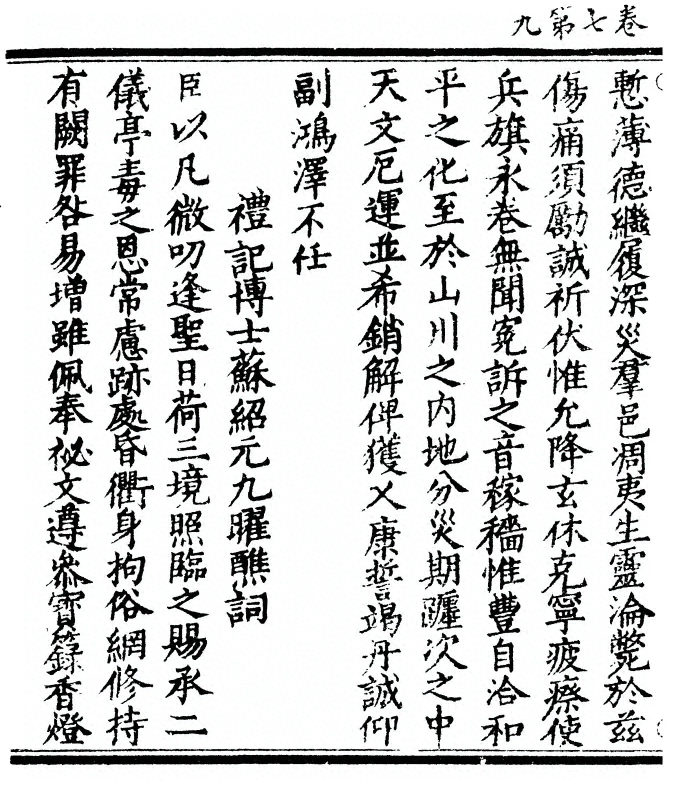 卷七第九
慙薄德繼履深災羣邑凋夷生靈淪斃於茲
傷痛須勵誠祈伏惟允降玄休克寧疲瘵使
兵旗永卷無聞寃訴之音稼穡惟豐自洽和
平之化至於山川之內地分災期躔次之中
天文厄運並希銷解俾獲乂康誓竭丹誠仰
副鴻澤不任
禮記博士蘇紹元九曜醮詞
臣以凡微叨逢聖日荷三境照臨之賜承二
儀亭毒之恩常慮跡處昏衢身拘俗網修持
有闕罪咎易增雖佩奉祕文遵叅寶籙香燈